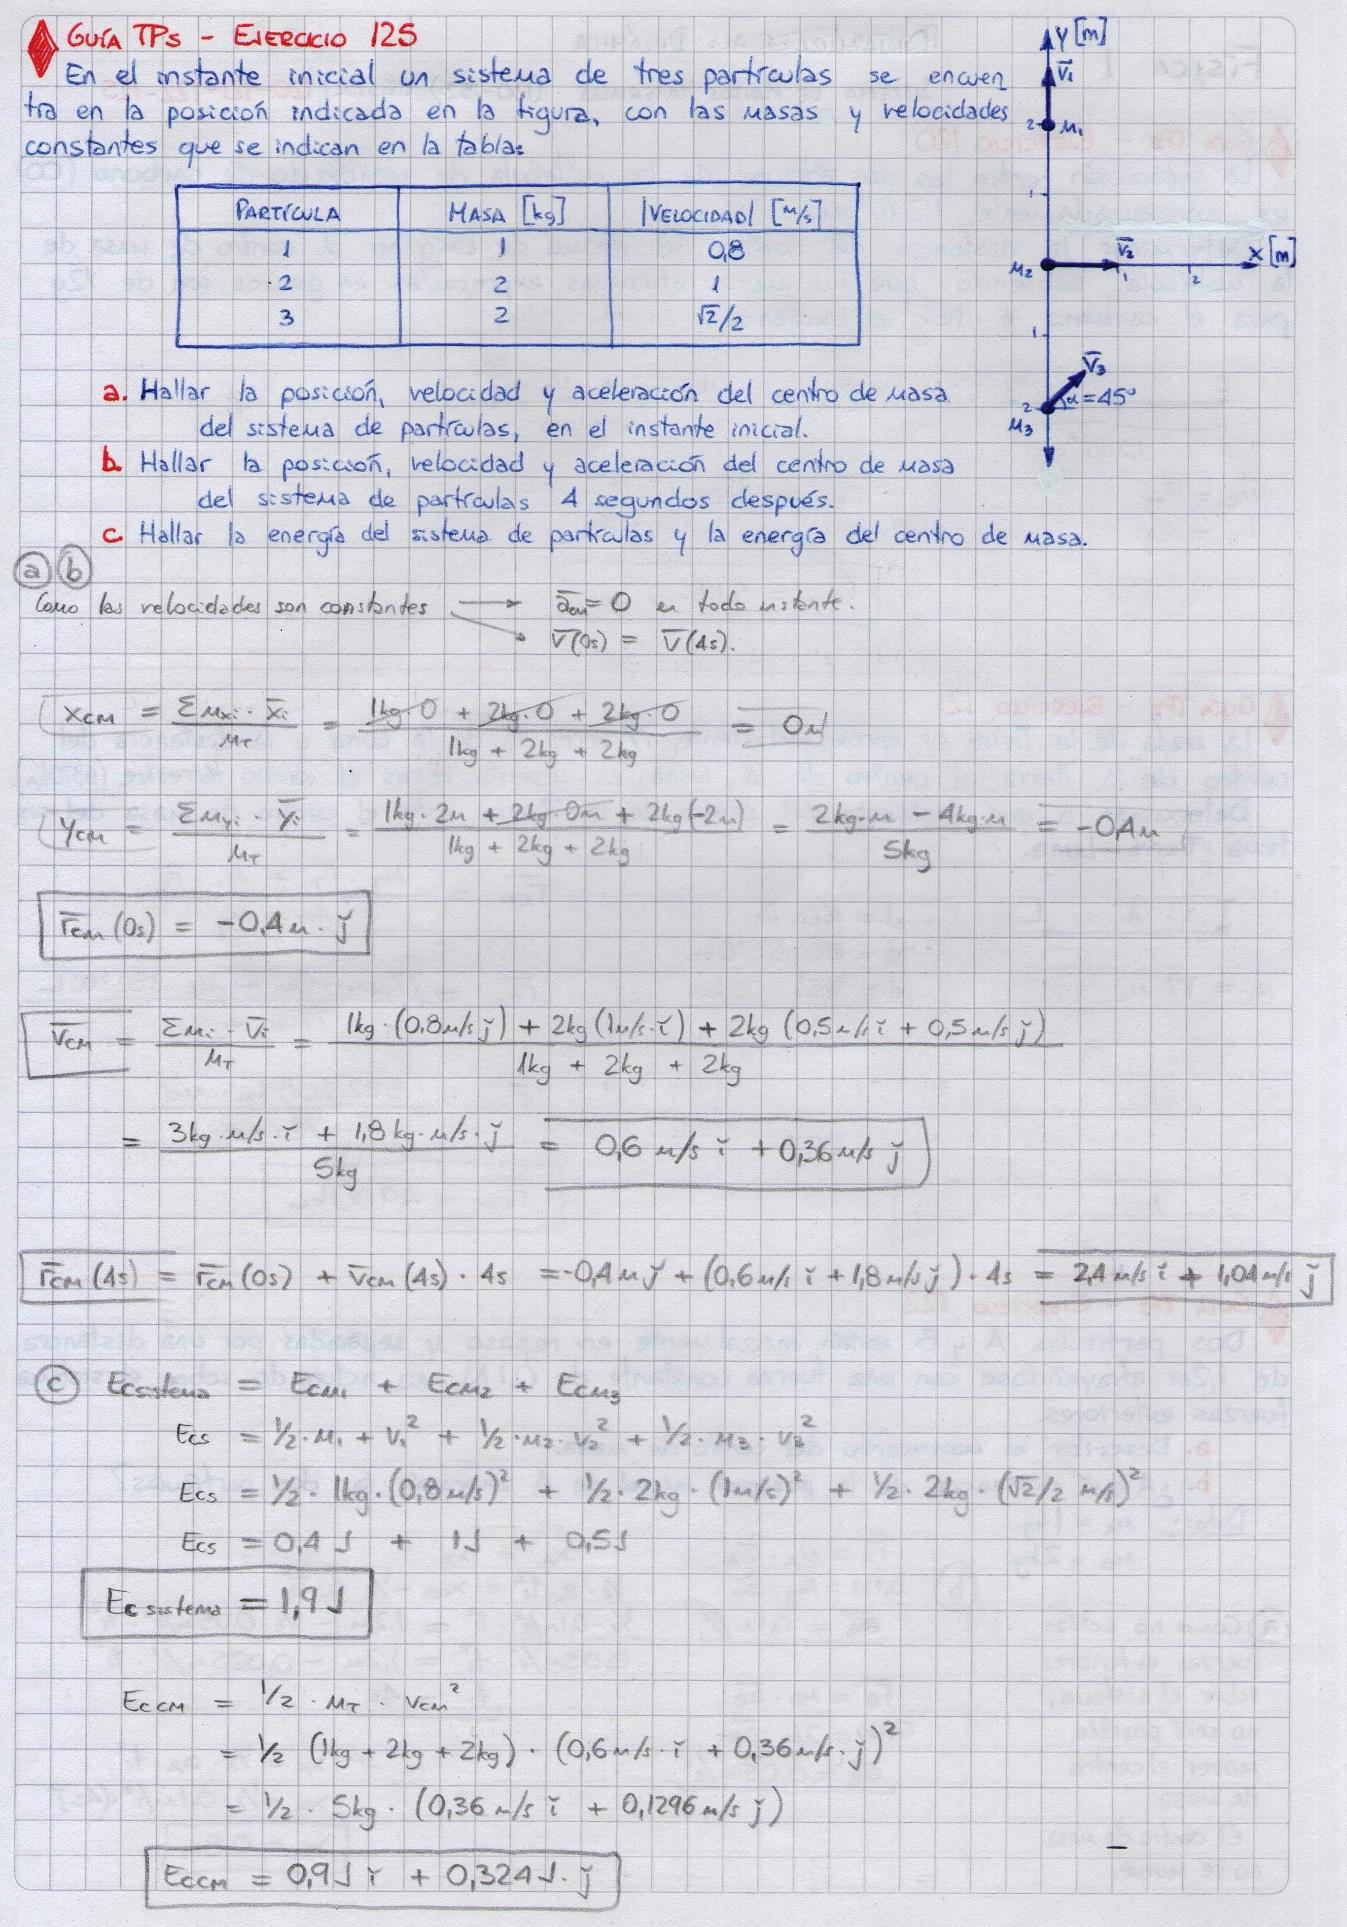 GUÍA TPs - EJERCICIO 125
En el instante inicial un sistema de tres partículas se encuen
tra en la posición indicada en la figura, con las masas y velocidades
constantes que se indican en la tabla:
PARTÍCULA MASA [kg] |VELOCIDAD| [m/s]
1 1 0,8
2 2 1
3 2 √2/2
Y [m]
V̄₁
2 m₁
1
m₂ V̄₂ X [m]
1 2
1
V̄₃
2 α=45°
m₃
a. Hallar la posición, velocidad y aceleración del centro de masa
del sistema de partículas, en el instante inicial.
b. Hallar la posición, velocidad y aceleración del centro de masa
del sistema de partículas 4 segundos después.
c. Hallar la energía del sistema de partículas y la energía del centro de masa.
a b
Como las velocidades son constantes → ā_cm = 0 en todo instante.
→ V̄(0s) = V̄(4s).
x_CM = Σm_xi · x̄_i / m_T = (1kg·0 + 2kg·0 + 2kg·0) / (1kg + 2kg + 2kg) = 0m
ȳ_CM = Σm_yi · ȳ_i / m_T = (1kg·2m + 2kg·0m + 2kg(-2m)) / (1kg + 2kg + 2kg) = (2kg·m - 4kg·m) / 5kg = -0,4m
r̄_cm (0s) = -0,4m · ǰ
V̄_CM = Σm_i · V̄_i / m_T = (1kg·(0,8m/s ǰ) + 2kg(1m/s·ǐ) + 2kg (0,5m/s ǐ + 0,5m/s ǰ)) / (1kg + 2kg + 2kg)
= (3kg·m/s·ǐ + 1,8kg·m/s·ǰ) / 5kg = 0,6 m/s ǐ + 0,36m/s ǰ
r̄_CM (4s) = r̄_CM (0s) + V̄_CM (4s) · 4s = -0,4m ǰ + (0,6m/s ǐ + 1,8m/s ǰ) · 4s = 2,4 m/s ǐ + 1,04m/s ǰ
c Ec sistema = E_CM₁ + E_CM₂ + E_CM₃
Ecs = 1/2 · m₁ + v₁² + 1/2 · m₂ · v₂² + 1/2 · m₃ · v₃²
Ecs = 1/2 · 1kg · (0,8m/s)² + 1/2 · 2kg · (1m/s)² + 1/2 · 2kg · (√2/2 m/s)²
Ecs = 0,4 J + 1J + 0,5J
Ec sistema = 1,9J
E_CCM = 1/2 · m_T · v_CM²
= 1/2 (1kg + 2kg + 2kg) · (0,6m/s·ǐ + 0,36m/s·ǰ)²
= 1/2 · 5kg · (0,36m/s ǐ + 0,1296m/s ǰ)
E_CCM = 0,9J ǐ + 0,324J · ǰ